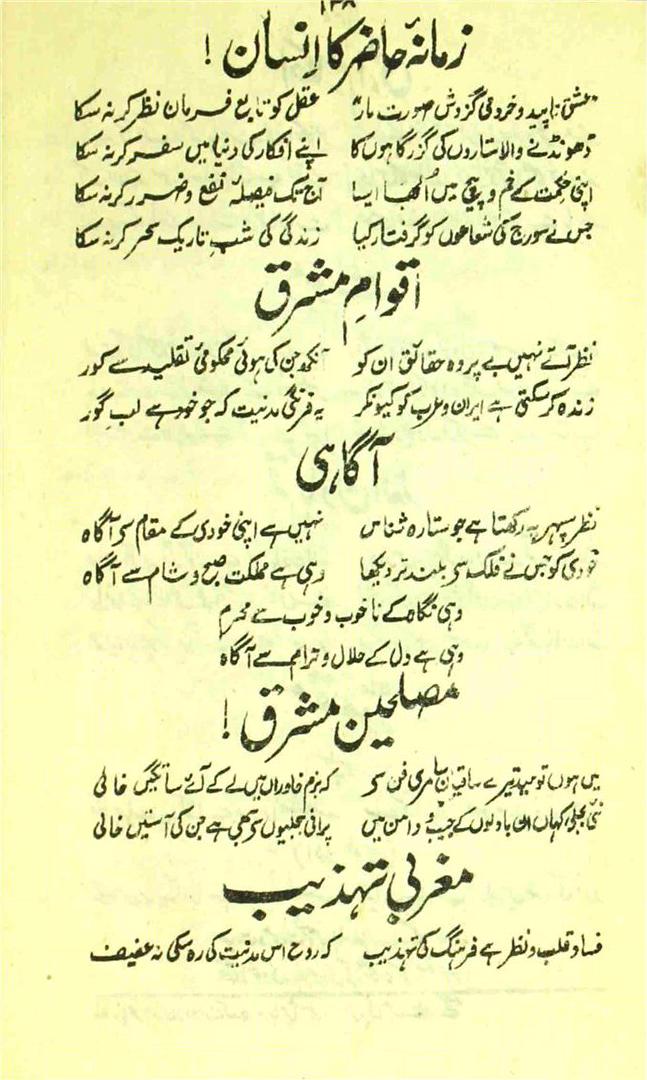 ۱۳۸
زمانۂ حاضر کا انسان!
عشق ناپید و خرد می گزدش صورت مار عقل کو تابع فرمان نظر کر نہ سکا
ڈھونڈنے والا ستاروں کی گزرگاہوں کا اپنے افکار کی دنیا میں سفر کر نہ سکا
اپنی حکمت کے خم و پیچ میں اُلجھا ایسا آج تک فیصلۂ نفع و ضرر کر نہ سکا
جس نے سورج کی شعاعوں کو گرفتار کیا زندگی کی شبِ تاریک سحر کر نہ سکا
اقوامِ مشرق
نظر آتے نہیں بے پردہ حقائق ان کو آنکھ جن کی ہوئی محکومئ تقلید سے کور
زندہ کر سکتی ہے ایران و عرب کو کیونکر یہ فرنگی مدنیت کہ جو خود ہے لب گور
آگاہی
نظر سپہر پہ رکھتا ہے جو ستارہ شناس نہیں ہے اپنی خودی کے مقام سے آگاہ
خودی کو جس نے فلک سے بلند تر دیکھا وہی ہے مملکت صبح و شام سے آگاہ
وہی نگاہ کے ناخوب و خوب سے محرم
وہی ہے دل کے حلال و حرام سے آگاہ
مصلحین مشرق!
میں ہوں نومید تیرے ساقیان سامری فن سے کہ بزم خاوراں میں لے کے آئے ساتگیں خالی
نئی بجلی کہاں ان بادلوں کے جیب و دامن میں پرانی بجلیوں سے بھی ہے جن کی آستیں خالی
مغربی تہذیب
فساد قلب و نظر ہے فرنگ کی تہذیب کہ روح اس مدنیت کی رہ سکی نہ عفیف